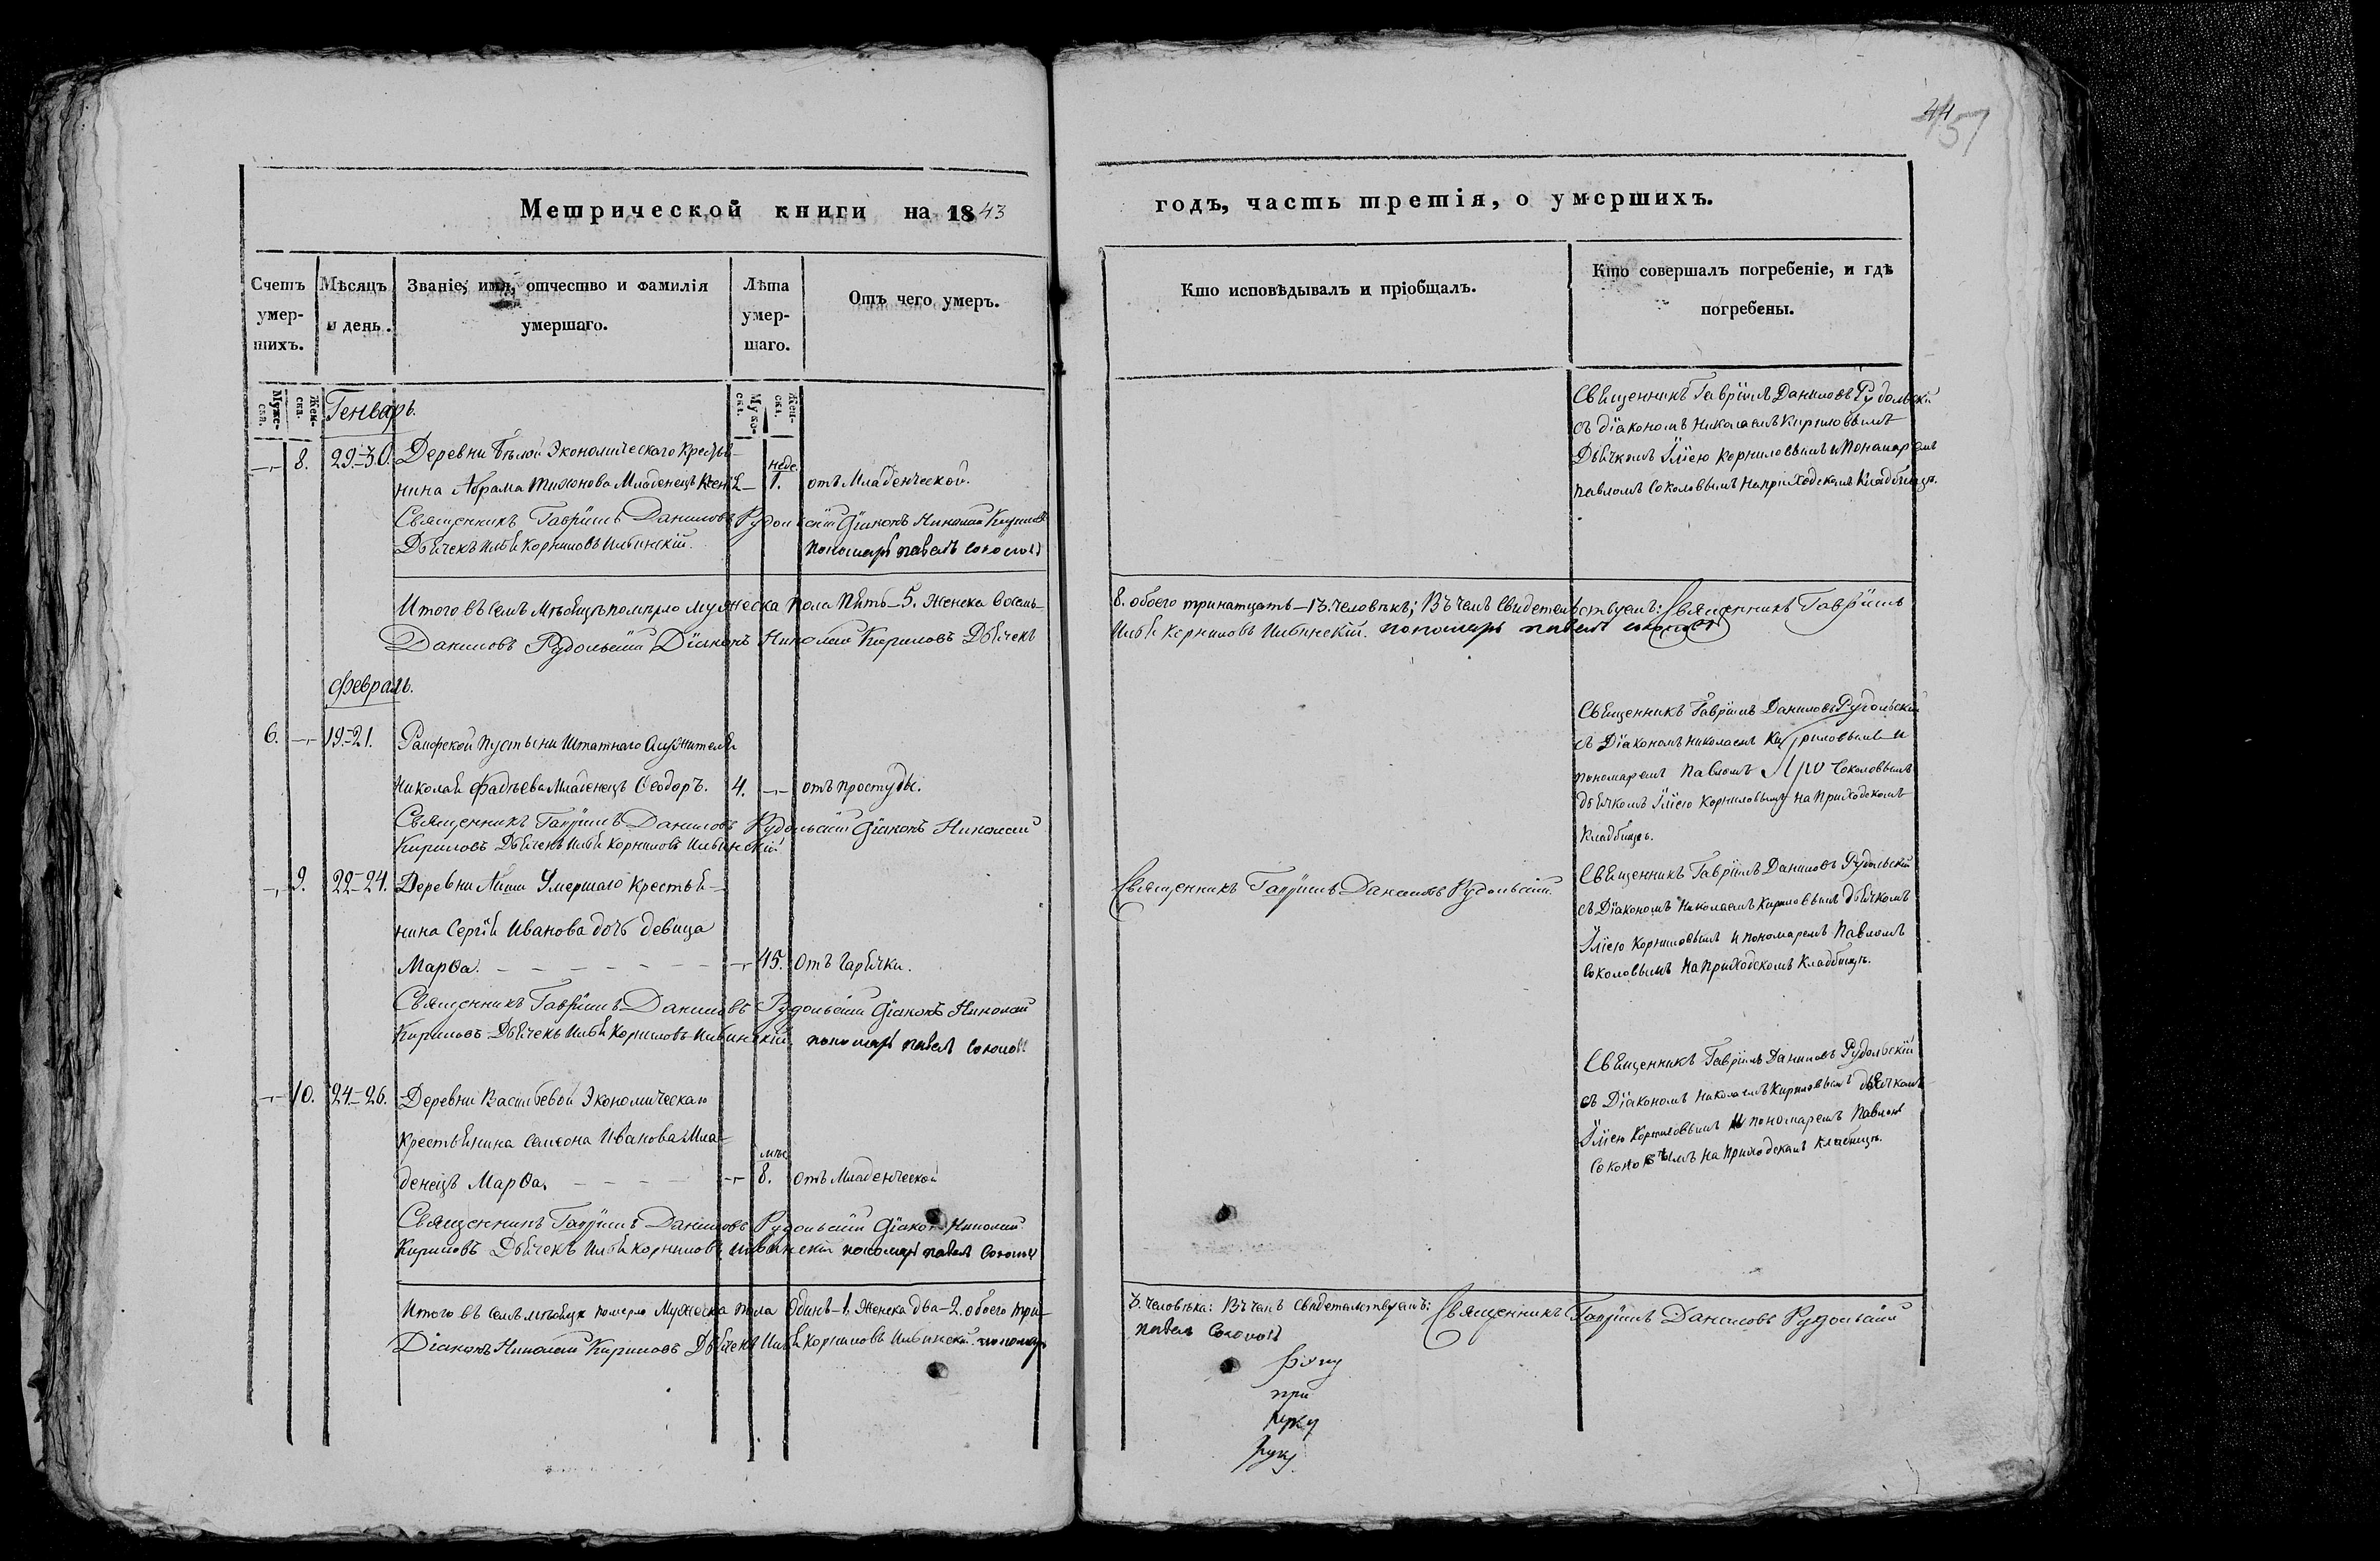 44
57
Метрической книги на 1843
годъ, часть третія, о умершихъ.
Счетъ умер-шихъ.
Мѣсяцъ и день.
Званіе, имя, отчество и фамилія умершаго.
Лѣта умер-шаго.
Отъ чего умеръ.
Кто исповѣдывалъ и пріобщалъ.
Кто совершалъ погребеніе, и гдѣ погребены.
Муже-ска.
Жен-ска.
Муже-ска.
Жен-ска.
Генварь.
8. 29-30. Деревни Бѣлой Экономическаго Крестья-
нина Абрама Тихонова Младенецъ 1. отъ Младенческой.
неде.
Священникъ Гавріилъ Даниловъ Рудольскій Діаконъ Николай Кириловъ
Дьячекъ Илья Корниловъ Ильинскій. пономарь павелъ соколовъ
Священникъ Гавріилъ Даниловъ Рудольскій
съ діакономъ Николаемъ Кириловымъ
Дьячкомъ Іліею Корниловымъ и Пономаремъ
павломъ Соколовымъ на приходскомъ Кладбищѣ.
Итого въ семъ мѣсяцѣ померло мужеска пола пять-5. Женска восемь-
8. обоего тринатцать-13. человѣкъ; Въ чемъ свидетельствуемъ: Священникъ Гавріилъ
Даниловъ Рудольскій Діаконъ Николай Кириловъ Дьячекъ
Илья Корниловъ Ильинскій. пономарь павелъ соколовъ
Февраль.
6. 19-21. Раифской пустыни Штатнаго служителя
Николая Фадѣева Младенецъ Ѳеодоръ. 4. отъ простуды.
Священникъ Гавріилъ Даниловъ Рудольскій Діаконъ Николай
Кириловъ Дьячекъ Илья Корниловъ Ильинскій
Священникъ Гавріилъ Даниловъ Рудольскій
съ Діакономъ Николаемъ Кириловымъ и
пономаремъ Павломъ Соколовымъ
дьячкомъ Іліею Корниловымъ на Приходскомъ
Кладбищѣ.
9. 22-24. Деревни Умершаго крестья-
нина Сергія Иванова дочь девица
Марѳа. 45. Отъ Гарячки.
Священникъ Гавріилъ Даниловъ Рудольскій Діаконъ Николай
Кириловъ Дьячекъ Илья Корниловъ Ильинскій. пономарь павелъ Соколовъ
Священникъ Гавріилъ Даниловъ Рудольскій.
Священникъ Гавріилъ Даниловъ Рудольскій
съ Діакономъ Николаемъ Кириловымъ дьячкомъ
Іліею Корниловымъ и пономаремъ Павломъ
Соколовымъ на Приходскомъ Кладбищѣ.
10. 24-26. Деревни Васильевой Экономическаго
крестьянина Самсона Иванова Мла-
мѣс
денецъ Марѳа. 8. отъ Младенческой
Священникъ Гавріилъ Даниловъ Рудольскій Діаконъ Николай
Кириловъ Дьячекъ Илья корниловъ ильинскій пономарь павелъ Соколовъ
Священникъ Гавріилъ Даниловъ Рудольскій
съ Діакономъ Николаемъ Кириловымъ дьячкомъ
Іліею Корниловымъ и пономаремъ Павломъ
Соколовымъ на Приходскомъ кладбищѣ.
Итого въ семъ мѣсяцѣ померло Мужеска пола Одинъ-1. Женска два-2. обоего три-
3. человѣка: Въ чемъ свидетельствуемъ: Священникъ Гавріилъ Даниловъ Рудольскій
Діаконъ Николай Кириловъ Дьячекъ Илья Корниловъ Ильинскій. пономарь
павелъ Соколовъ
при
руку